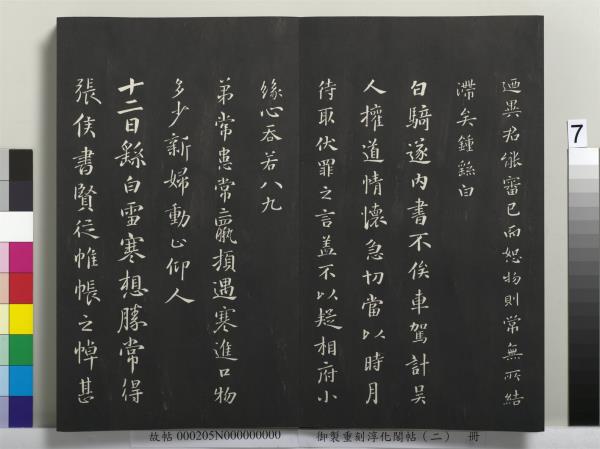 迺異君能審已而恕物則常無所結
滯矣鍾繇白
白騎遂內書不俟車駕計吳
人權道情懷急切當以時月
待取伏罪之言蓋不以疑相府小
緣心吞若八九
弟常患常羸頓遇寒進口物
多少新婦動止仰人
十二日繇白雪寒想勝常得
張侯書賢從帷帳之悼甚
7
故帖 000205N000000000 御製重刻淳化閣帖（二） 冊